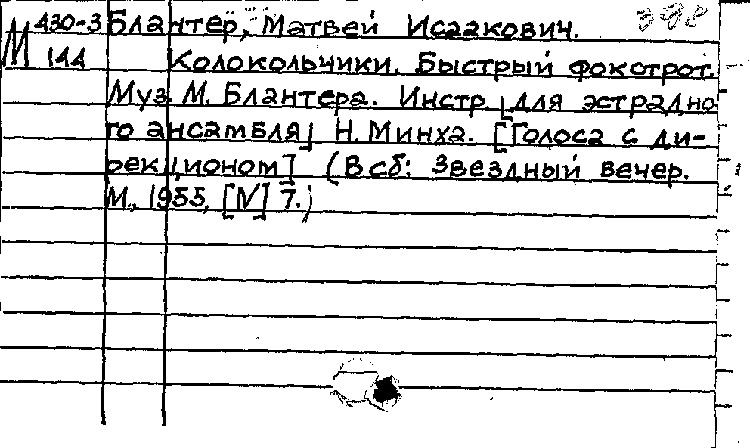 М 430-3 Блантер, Матвей Исаакович. 398
144 Колокольчики. Быстрый фокстрот.
Муз. М. Блантера. Инстр. [для эстрадно
го ансамбля] Н. Минха. [Голоса с ди-
рекционом] (В сб: Звездный вечер.
М., 1955, [N] 7.)